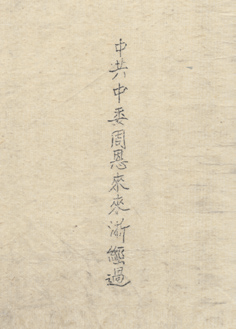 中共中委周恩來來浙經過